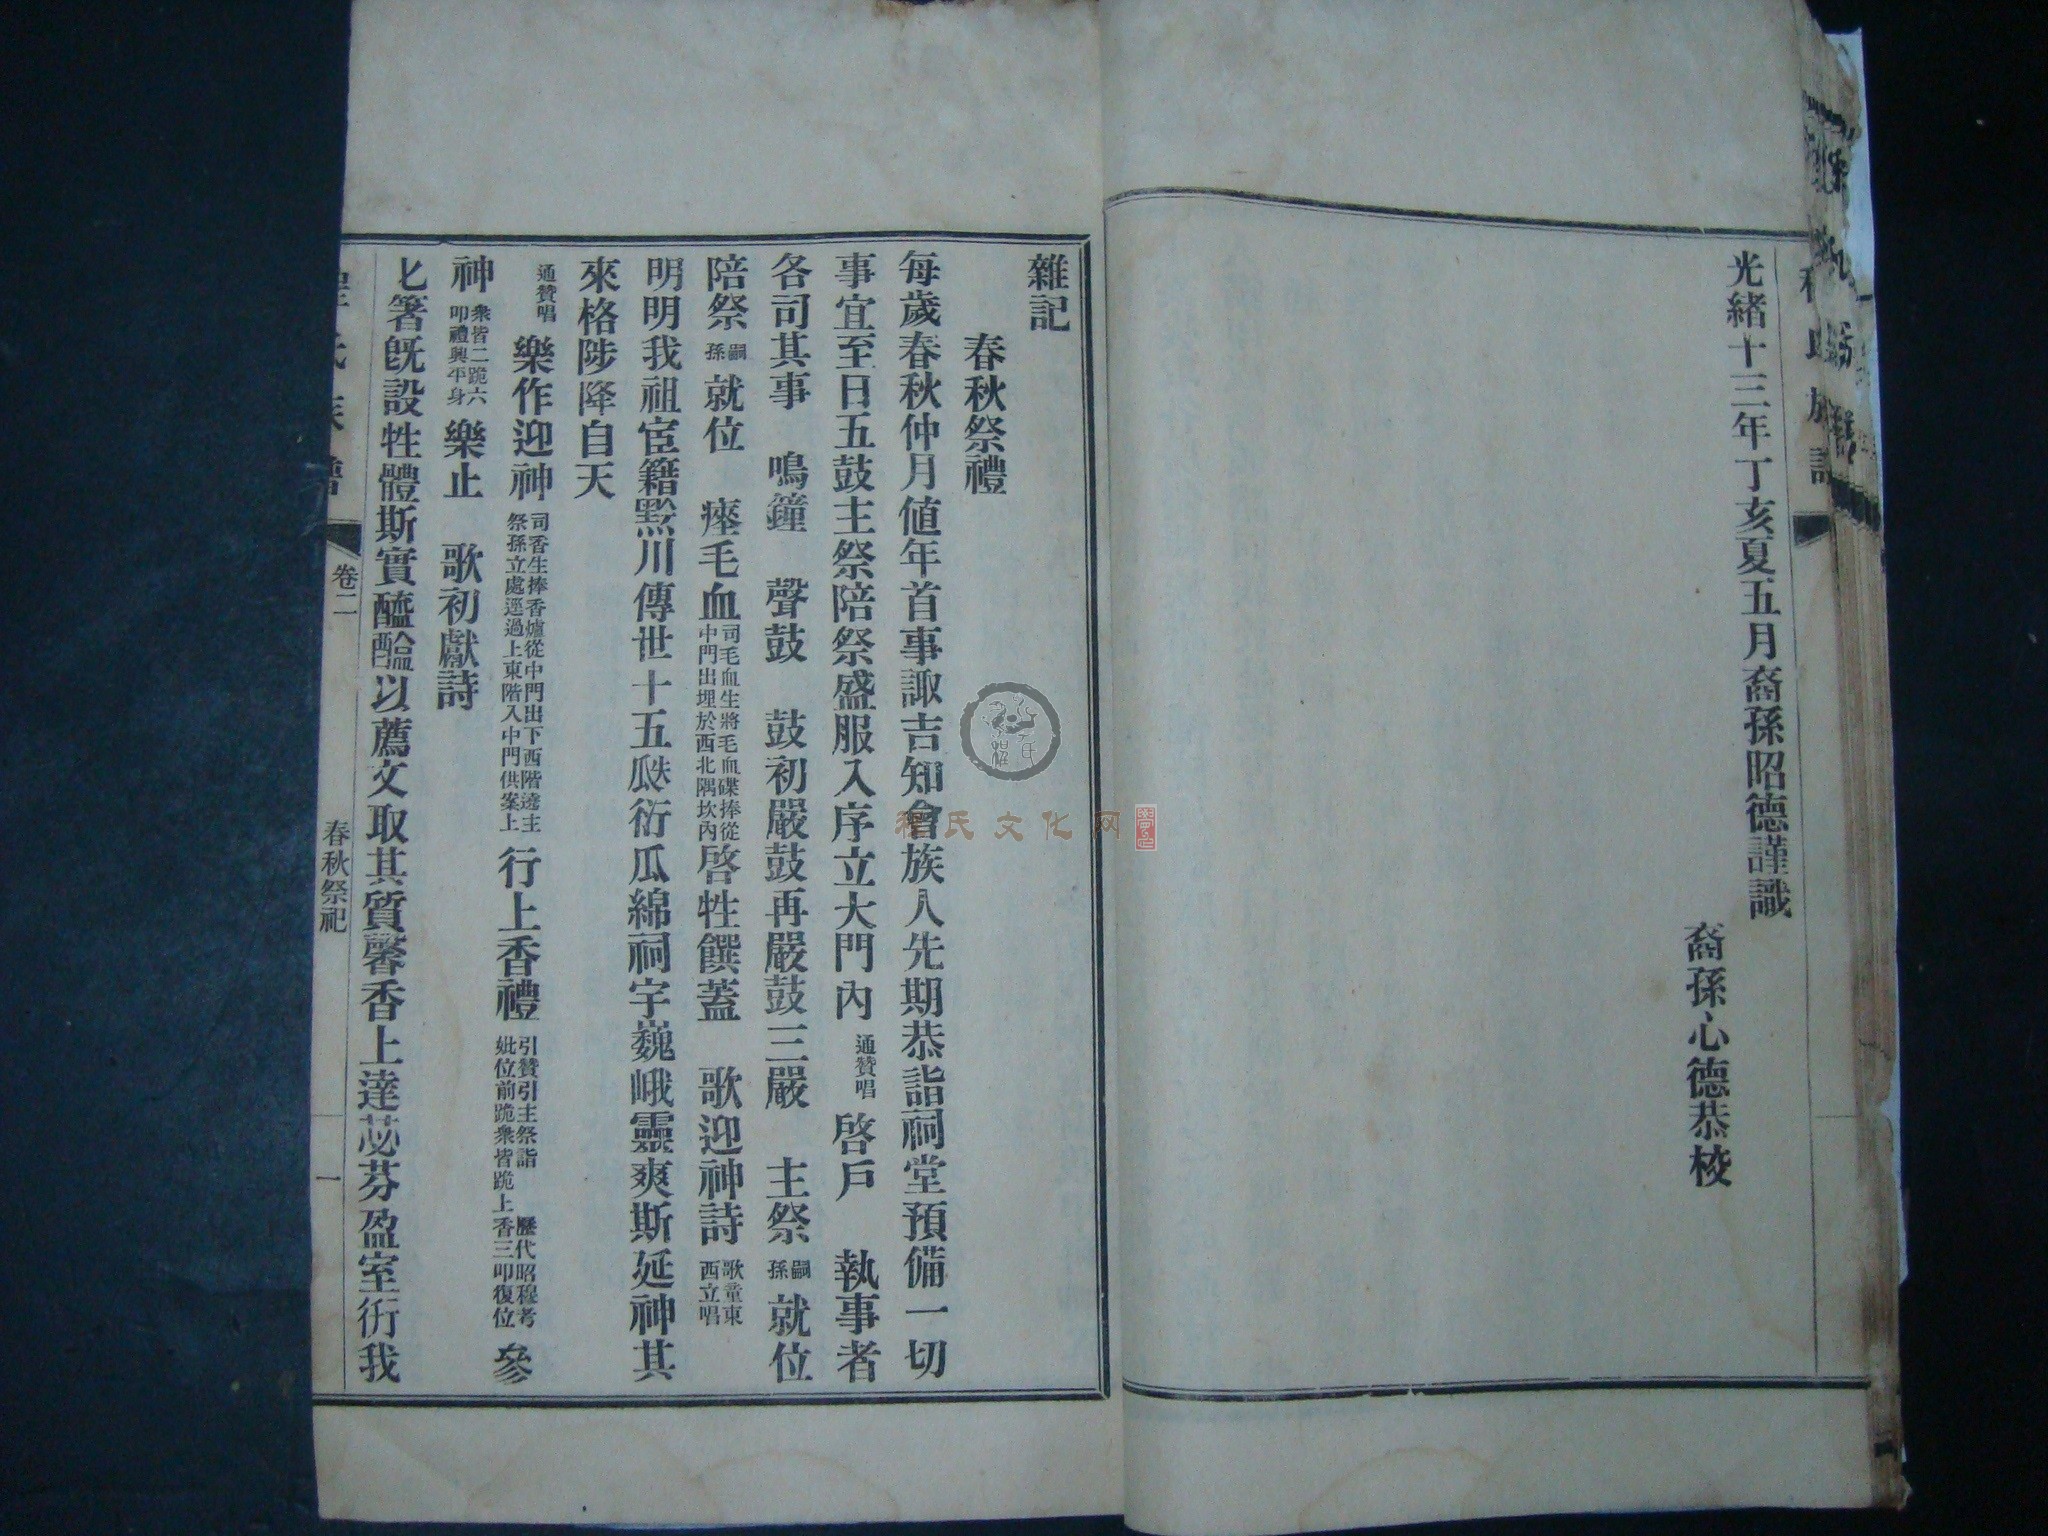 光緒十三年丁亥夏五月裔孫昭德謹識
裔孫心德恭校
雜記
春秋祭禮
每歲春秋仲月值年首事諏吉知會族人先期恭詣祠堂預備一切
事宜至日五鼓主祭陪祭盛服入序立大門內 通贊唱 啓戶 執事者
各司其事 鳴鐘 聲鼓 鼓初嚴鼓再嚴鼓三嚴 主祭 嗣孫 就位
陪祭 嗣孫 就位 瘞毛血 司毛血生將毛血碟捧從中門出埋於西北隅坎內 啓牲饌蓋 歌迎神詩 歌童東西立唱
明明我祖宦籍黟川傳世十五瓞衍瓜綿祠宇巍峨靈爽斯延神其
來格陟降自天
通贊唱 樂作迎神 司香生捧香爐從中門出下西階遶主祭孫立處逕過上東階入中門供案上 行上香禮 引贊引主祭詣 歷代昭穆考妣位前跪衆皆跪上香三叩復位 參
神 衆皆二跪六叩禮興平身 樂止 歌初獻詩
匕箸既設牲體斯實醯醢以薦文取其質馨香上達苾芬盈室衎我
卷二
春秋祭祀
一
程氏文化网